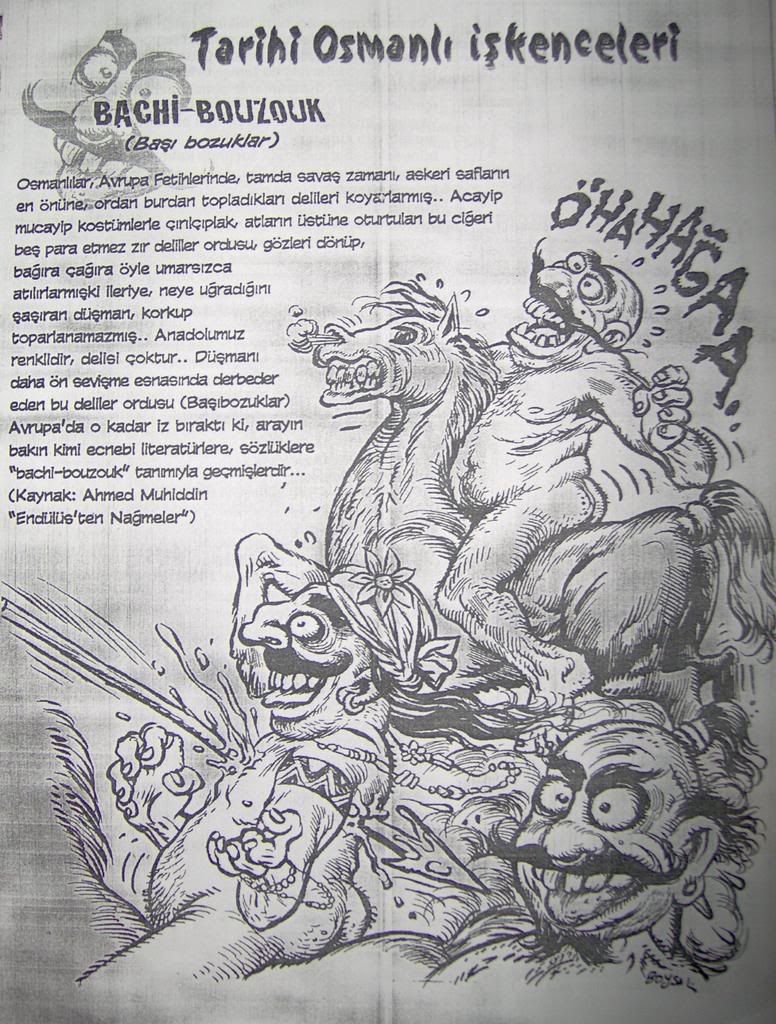 Tarihi Osmanlı işkenceleri
BACHİ-BOUZOUK
(Başı bozuklar)
Osmanlılar, Avrupa Fetihlerinde, tamda savaş zamanı, askeri safların
en önüne, ordan burdan topladıkları delileri koyarlarmış.. Acayip
mucayip kostümlerle çırılçıplak, atların üstüne oturtulan bu ciğeri
beş para etmez zır deliller ordusu, gözleri dönüp,
bağıra çağıra öyle umarsızca
atılırlarmışki ileriye, neye uğradığını
şaşıran düşman, korkup
toparlanamazmış.. Anadolumuz
renklidir, delisi çoktur.. Düşmanı
daha ön sevişme esnasında derbeder
eden bu deliller ordusu (Başıbozuklar)
Avrupa'da o kadar iz bıraktı ki, arayın
bakın kimi ecnebi literatürlere, sözlüklere
"bachi-bouzouk" tanımıyla geçmişlerdir...
(Kaynak: Ahmed Muhiddin
"Endülüs'ten Nağmeler")
ÖHAHAĞAAA..
BOYSIL